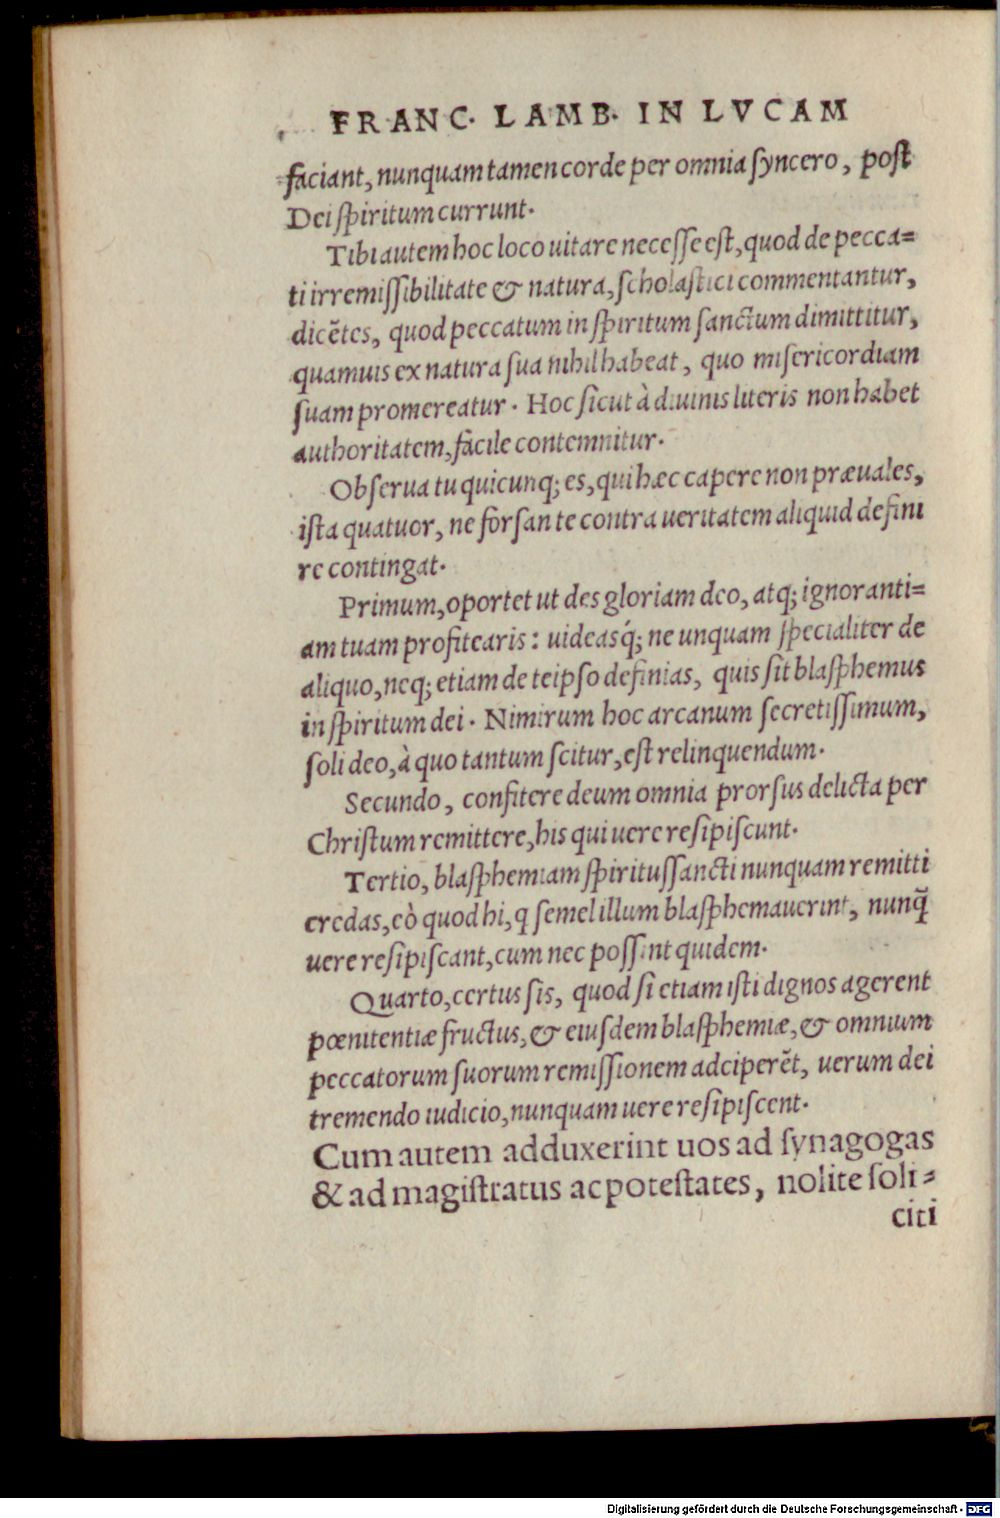 FRANC. LAMB. IN LVCAM
faciant, nunquam tamen corde per omnia ſyncero, poſt
Dei ſpiritum currunt.
Tibi autem hoc loco uitare neceſſe eſt, quod de pecca=
ti irremiſſibilitate & natura, ſcholaſtici commentantur,
dicẽtes, quod peccatum in ſpiritum ſanctum dimittitur,
quamuis ex natura ſua nihil habeat, quo miſericordiam
ſuam promereatur. Hoc ſicut à diuinis literis non habet
authoritatem, facile contemnitur.
Obſerua tu quicunq; es, qui hæc capere non præuales,
iſta quatuor, ne forſan te contra ueritatem aliquid defini
re contingat.
Primum, oportet ut des gloriam deo, atq; ignoranti=
am tuam profitearis: uideasq́; ne unquam ſpecialiter de
aliquo, neq; etiam de teipſo definias, quis ſit blaſphemus
in ſpiritum dei. Nimirum hoc arcanum ſecretiſſimum,
ſoli deo, à quo tantum ſcitur, eſt relinquendum.
Secundo, confitere deum omnia prorſus delicta per
Chriſtum remittere, his qui uere reſipiſcunt.
Tertio, blaſphemiam ſpirituſſancti nunquam remitti
credas, eò quod hi, q ſemel illum blaſphemauerint, nunq̃
uere reſipiſcant, cum nec poſſint quidem.
Quarto, certus ſis, quod ſi etiam iſti dignos agerent
pœnitentiæ fructus, & eiuſdem blaſphemiæ, & omnium
peccatorum ſuorum remiſſionem adciperẽt, uerum dei
tremendo iudicio, nunquam uere reſipiſcent.
Cum autem adduxerint uos ad ſynagogas
& ad magiſtratus ac poteſtates, nolite ſoli=
citi
Digitalisierung gefördert durch die Deutsche Forschungsgemeinschaft - DFG